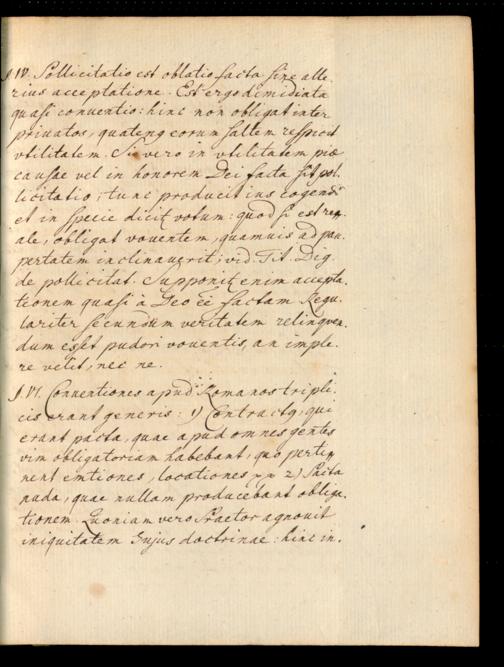 §. IV. Pollicitatio est oblatio facta sine alte-
rius acceptatione. Est ergo dimidiata
quasi conventio: hinc non obligat inter
privatos, quatenq eorum saltem respicit
vtilitatem. Si vero in vtilitatem piæ
causae vel in honorem Dei facta sit pol-
licitatio, tunc producit ius cogendi
et in specie dicit votum: quod si est re-
ale, obligat voventem, quamuis ad pau-
pertatem inclinaverit; vid. Tit. Dig.
de pollicitat. Supponit enim accepta-
tionem quasi à Deo eē factam. Regu-
lariter secundum veritatem relinquen-
dum esset pudori voventis, an imple-
re velit, nec ne.
§. VI. Conventiones apud Romanos tripli-
cis erant generis: 1) Contractq, qui
erant pacta, quae apud omnes gentes
vim obligatoriam habebant, quo perti-
nent emtiones, locationes 2) Pacta
nuda, quae nullam producebant obliga-
tionem. Quoniam vero Praetor agnovit
iniquitatem hujus doctrinae: hinc in-